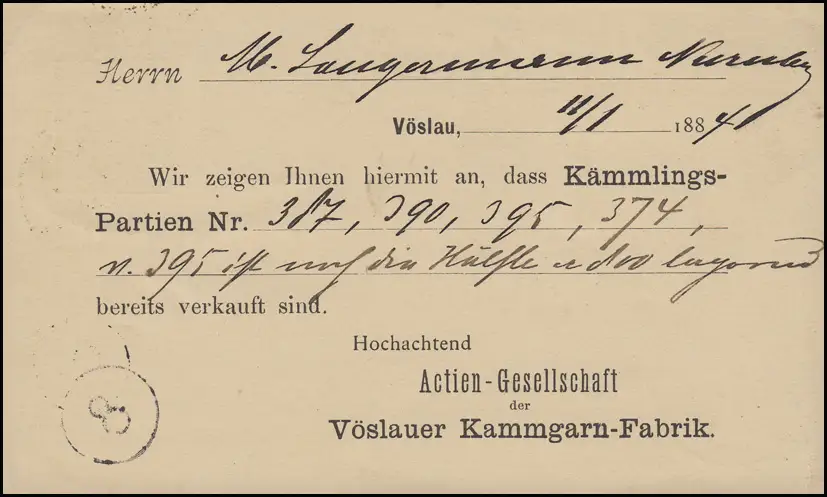 Herrn M. Langermann Nürnberg
Vöslau, 11/1 1884
Wir zeigen Ihnen hiermit an, dass Kämmlings-
Partien Nr. 387, 390, 395, 374,
v. 395 ist noch die Hälfte lagernd
bereits verkauft sind.
Hochachtend
Actien-Gesellschaft
der
Vöslauer Kammgarn-Fabrik.
8